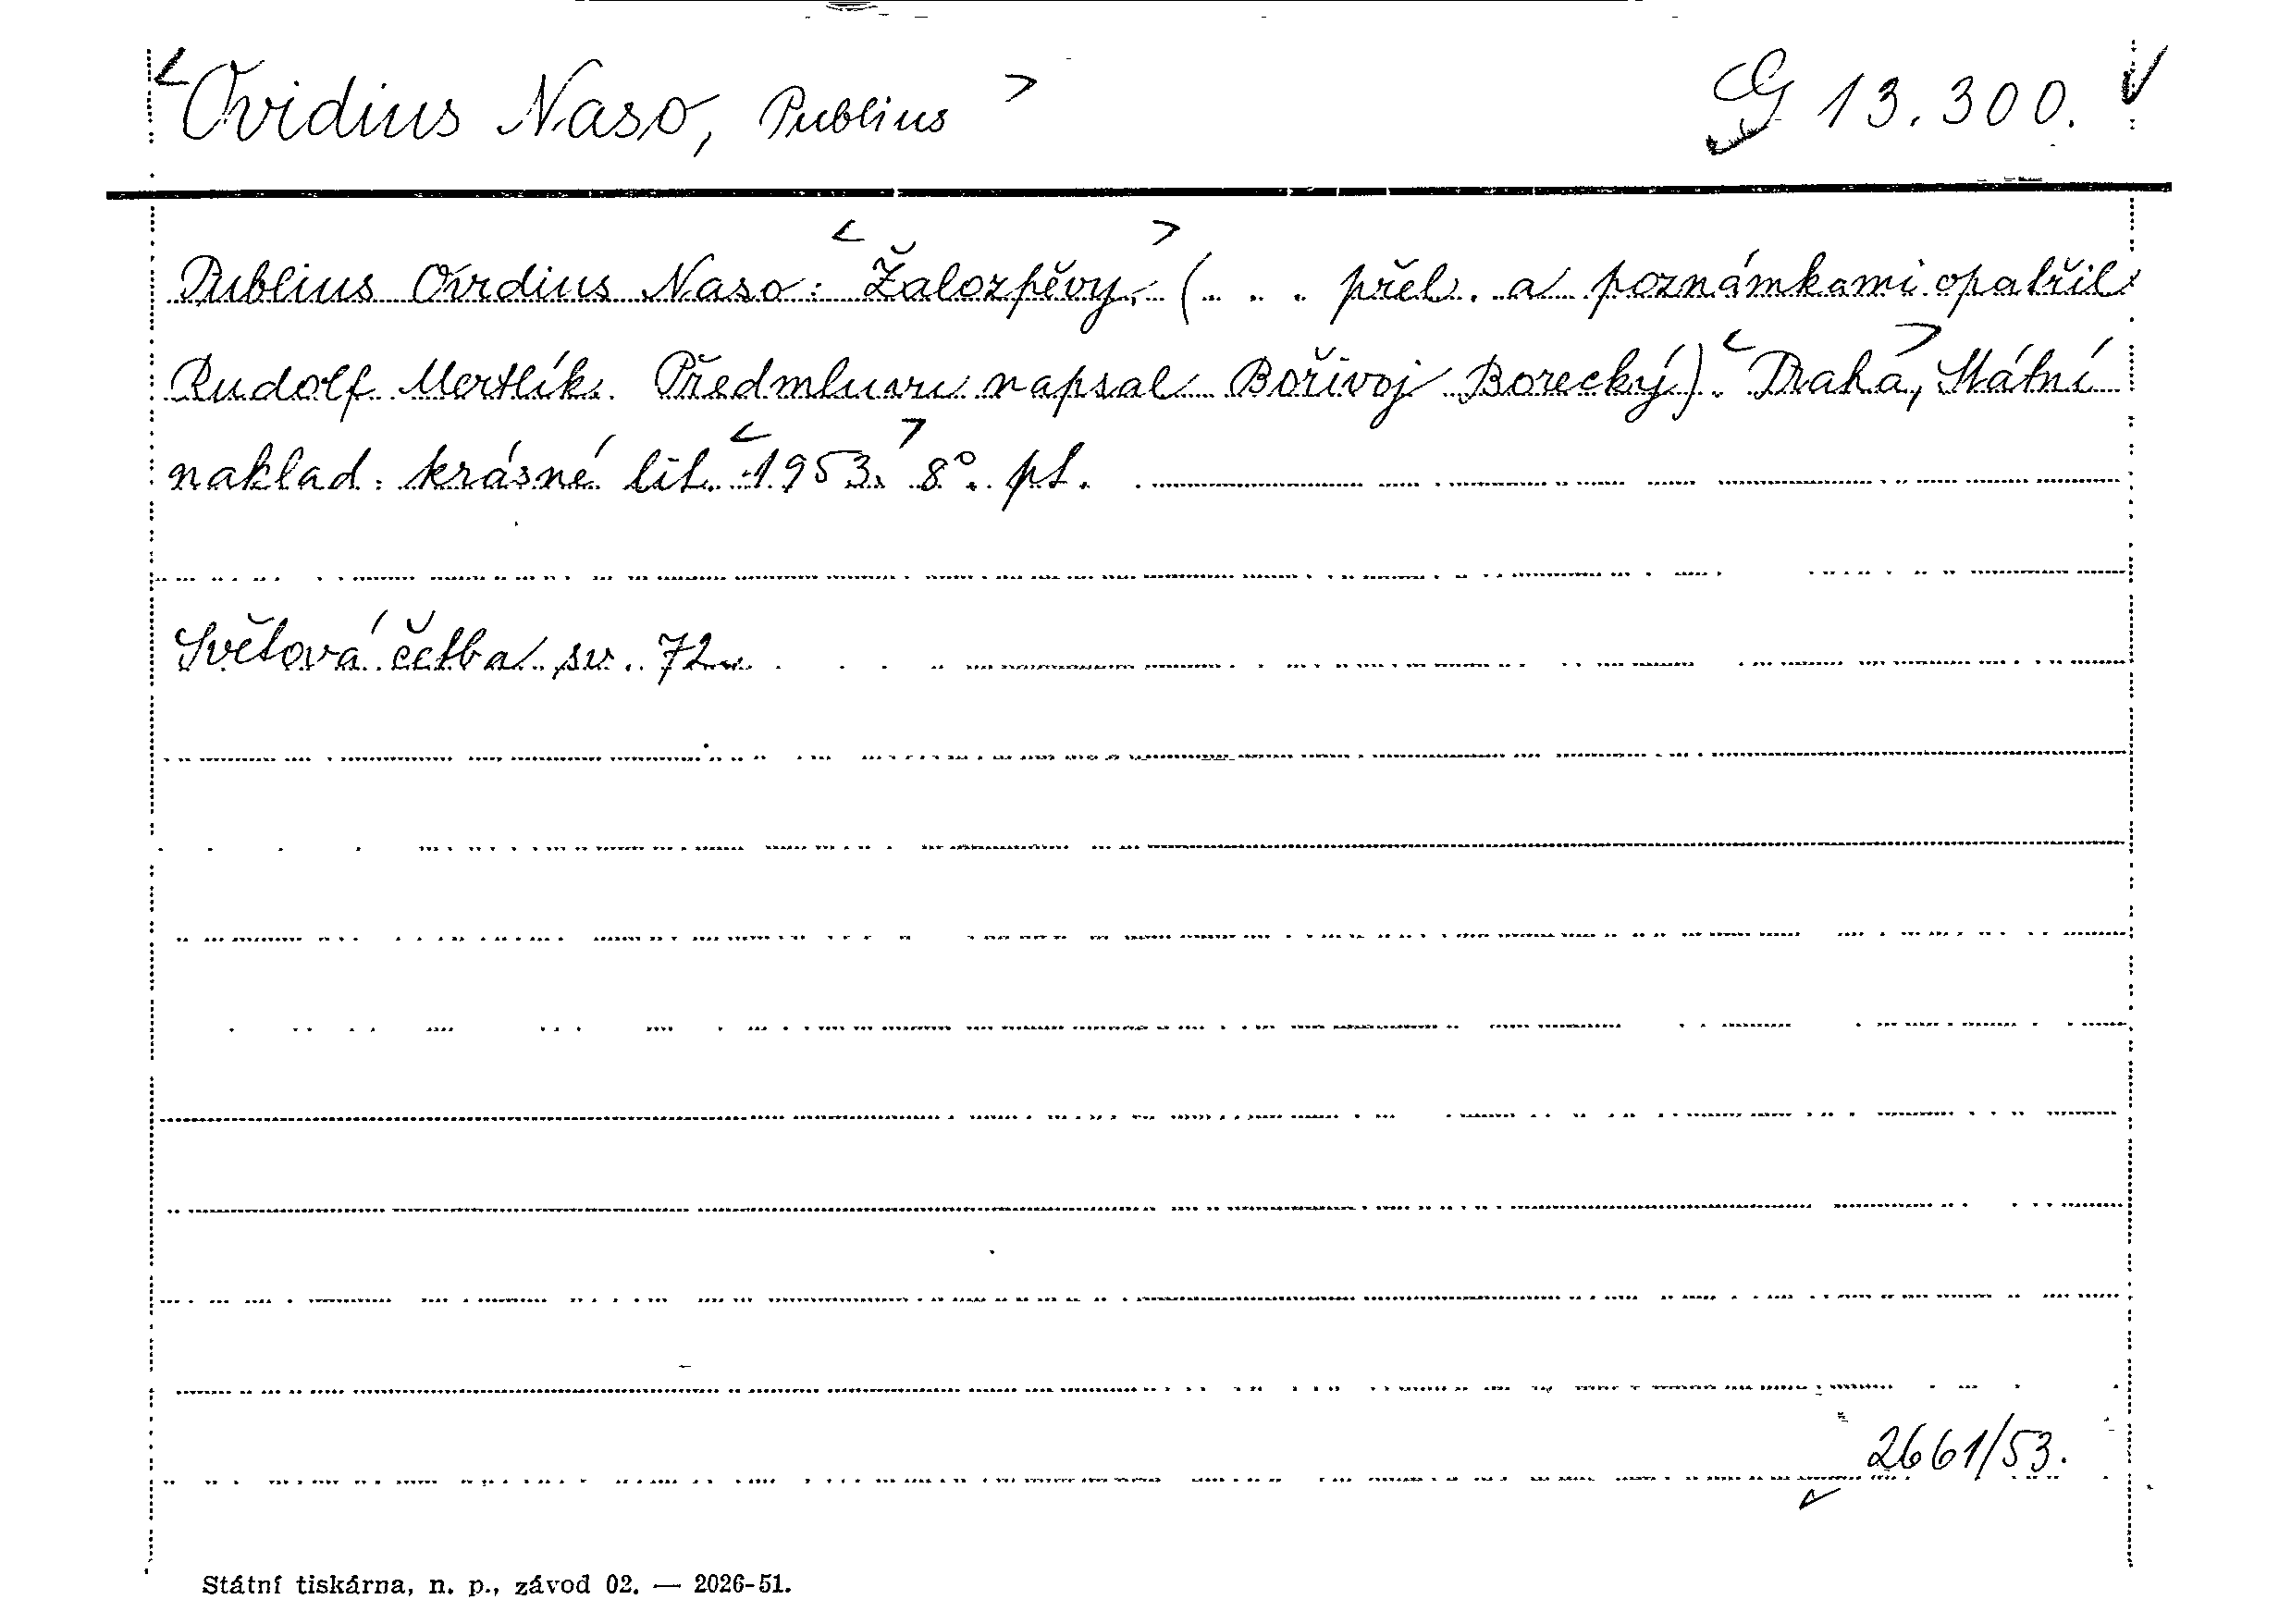 <Ovidius Naso, Publius> G 13.300.
Publius Ovidius Naso: <Žalozpěvy.> (... přel. a poznámkami opatřil
Rudolf Mertlík. Předmluvu napsal Bořivoj Borecký). <Praha>, Státní
naklad. krásné lit. <1953.> 8°. pt.
Světová četba sv. 72.
2661/53.
Státní tiskárna, n. p., závod 02. — 2026-51.